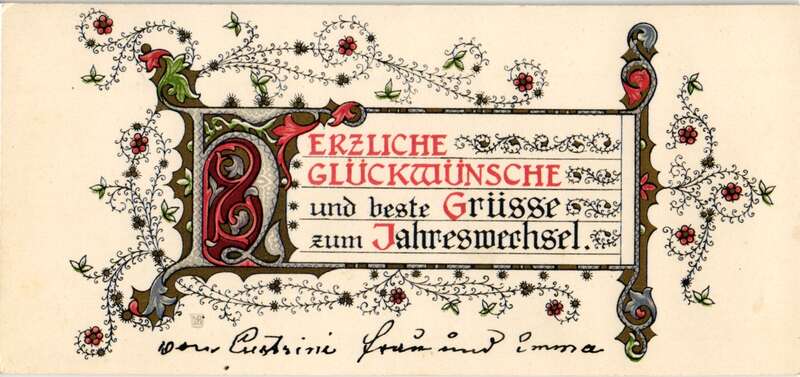 HERZLICHE
GLÜCKWÜNSCHE
und beste Grüsse
zum Jahreswechsel.
von frau und Emma